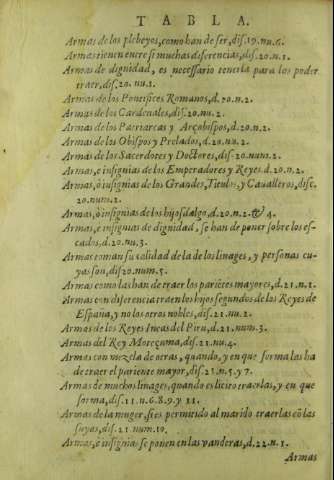 TABLA.
Armas de los plebeyos, como han de ser, dis. 19. nu. 6.
Armas tienen entre si muchas diferencias, dis. 20. n. 1.
Armas de dignidad, es necessario tenerla para los poder
traer, dis. 20. nu. 1.
Armas de los Pontifices Romanos, d. 20. n. 2.
Armas de los Cardenales, dis. 20. nu. 2.
Armas de los Patriarcas y Arçobispos, d. 20. n. 2.
Armas de los Obispos y Prelados, d. 20. nu. 2.
Armas de los Sacerdotes y Doctores, dis. 20. num. 2.
Armas, e insignias de los Emperadores y Reyes. d. 20. n. 2.
Armas, ò insignias de los Grandes, Titulos, y Caualleros, disc.
20. num. 2.
Armas, ò insignias de los hijosdalgo, d. 20. n. 2. & 4.
Armas, e insignias de dignidad, se han de poner sobre los es-
cudos, d. 20. nu. 3.
Armas toman su calidad de la de los linages, y personas cu-
yas son, dis 20. num. 5.
Armas como las han de traer los parietes mayores, d. 21. n. 1.
Armas con diferencia traen los hijos segundos de los Reyes de
España, y no los otros nobles, dis. 21. nu. 2.
Armas de los Reyes Incas del Piru, d. 21. num. 3.
Armas del Rey Moteçuma, dis. 21. nu. 4.
Armas con mezcla de otras, quando, y en que forma las ha
de traer el pariente mayor, dis. 21. n. 5. y 7.
Armas de muchos linages, quando es licito traerlas, y en que
forma, dis. 21. n. 6. 8. 9. y 11.
Armas de la muger, si es permitido al marido traerlas cõ las
suyas, dis. 21. num. 10.
Armas, è insignias se ponen en las vanderas, d. 22. n. 1.
Armas